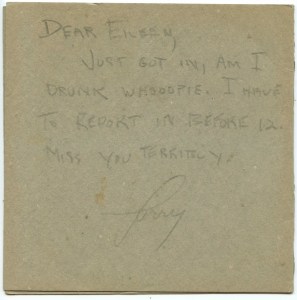 DEAR EILEEN,
JUST GOT IN, AM I
DRUNK WHOOOPIE. I HAVE
TO REPORT IN BEFORE 12.
MISS YOU TERRIBLY.